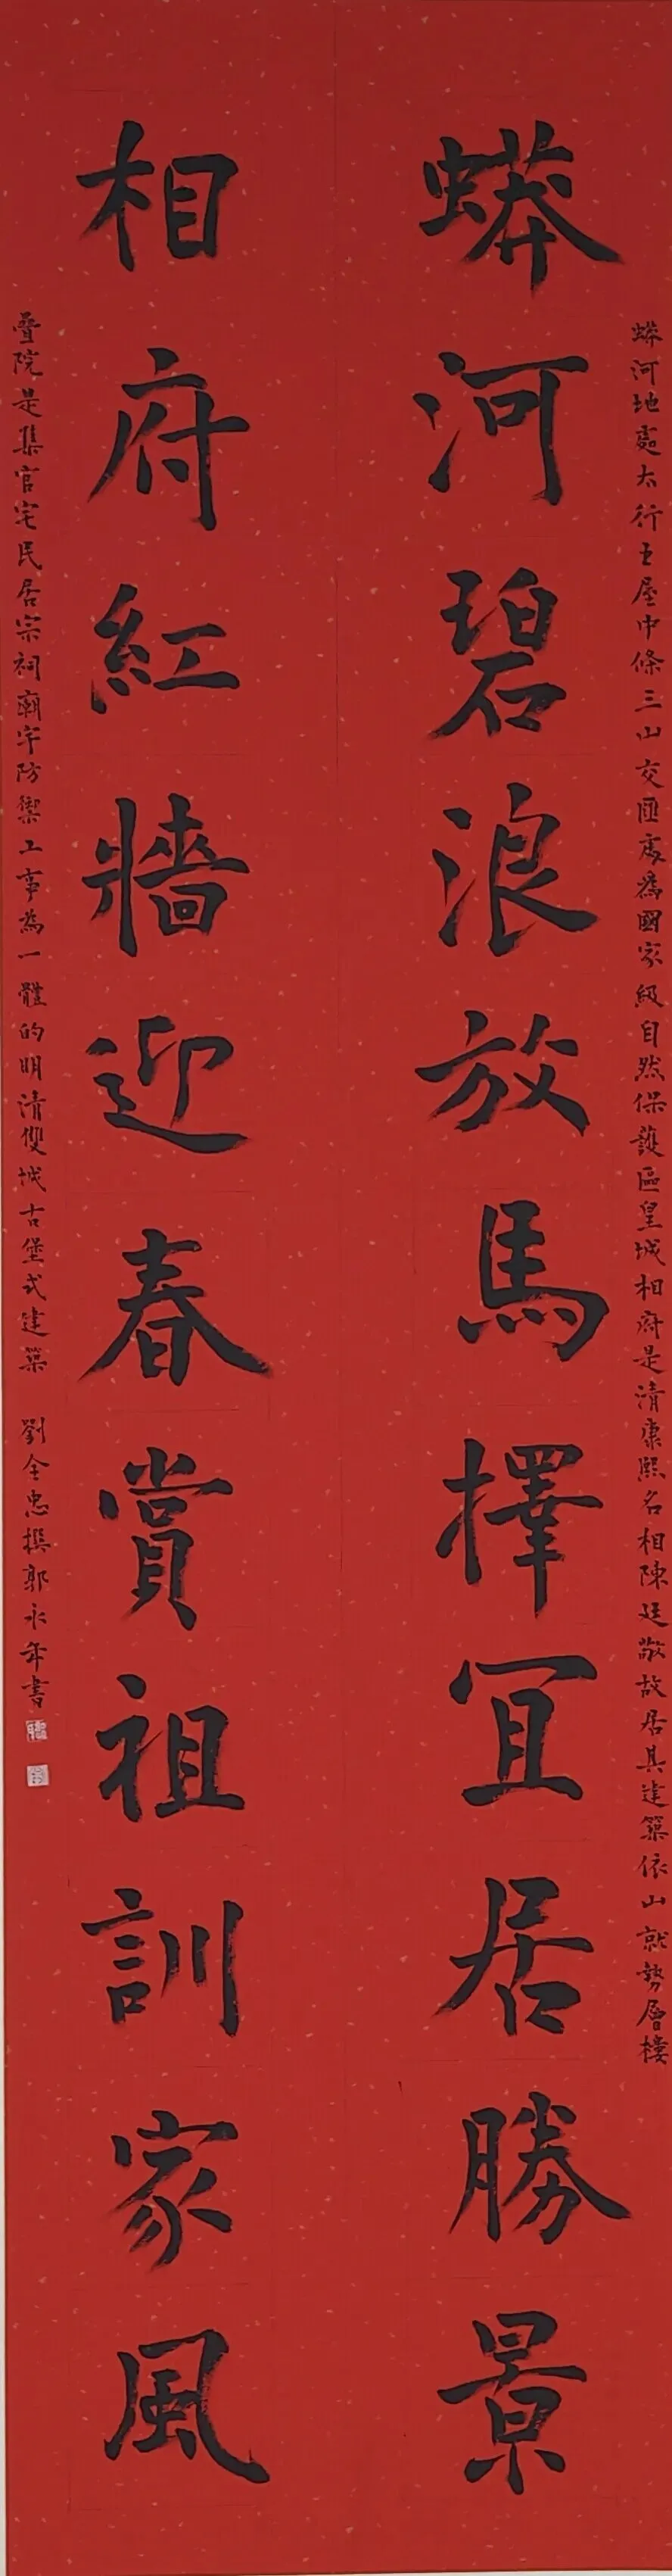 蟒河地處太行王屋中條三山交匯處為國家級自然保護區皇城相府是清康熙名相陳廷敬故居其建築依山就勢層樓
蟒河碧浪放馬擇宜居勝景
相府紅牆迎春賞祖訓家風
疊院是集官宅民居宗祠廟宇防禦工事為一體的明清雙城古堡式建築 劉全忠撰郭永年書